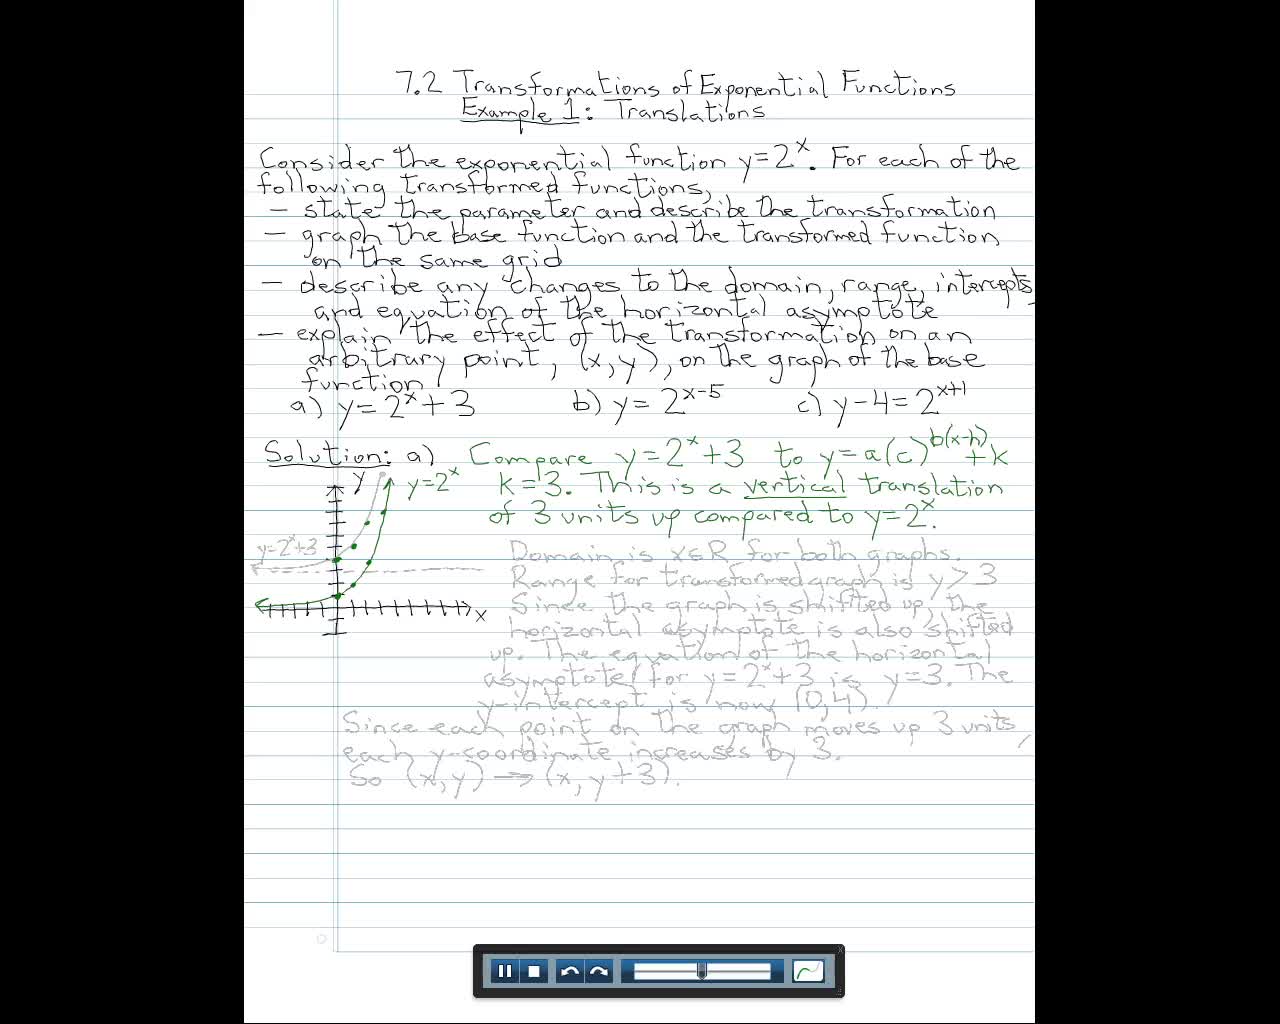 7.2 Transformations of Exponential Functions
Example 1: Translations
Consider the exponential function y=2^x. For each of the
following transformed functions,
– state the parameter and describe the transformation
– graph the base function and the transformed function
on the same grid
– describe any changes to the domain, range, intercepts,
and equation of the horizontal asymptote
– explain the effect of the transformation on an
arbitrary point, (x,y), on the graph of the base
function
a) y=2^x+3 b) y=2^(x-5) c) y-4=2^(x+1)
Solution: a) Compare y=2^x+3 to y=a(c)^(b(x-h))+k
k=3. This is a vertical translation
of 3 units up compared to y=2^x.
y
y=2^x
y=2^x+3
x
Domain is x∈R for both graphs.
Range for transformed graph is y>3
Since the graph is shifted up, the
horizontal asymptote is also shifted
up. The equation of the horizontal
asymptote for y=2^x+3 is y=3. The
y-intercept is now (0,4).
Since each point on the graph moves up 3 units,
each y-coordinate increases by 3.
So (x,y) → (x, y+3).